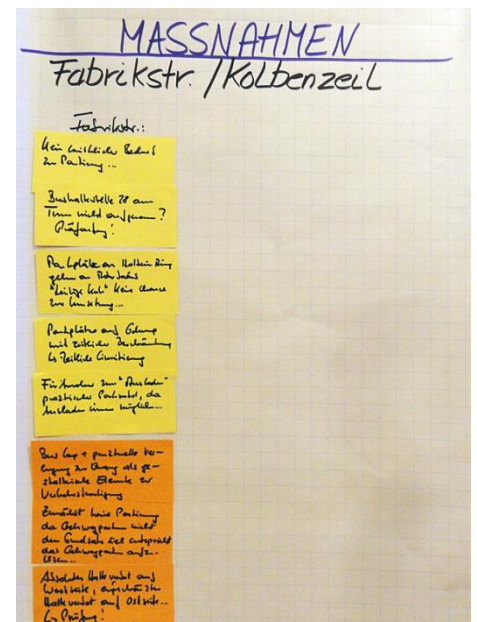 MASSNAHMEN
Fabrikstr. / Kolbenzeil
Fabrikstr.:
Kein Bedarf
zu Parkierung...
Bushaltestelle 28 am
Turm nicht aufgenom.?
Prüfauftrag!
Parkplätze an Ring
gehen an
"heilige Kuh" Kein Chance
zur Umsetzung...
Parkplätze auf Gehweg
mit zeitlicher Beschränkung
↳ Zeitliche Limitierung
Für Anwohner zum "Ausladen"
praktischer Parkverbot, da
Ausladen immer möglich...
Bus Cap + punktuelle Ver-
engung zu Querung als ge-
stalterische Elemente zur
Verkehrsberuhigung
Zunächst keine Parkierung
da Gehwegparken nicht
dem Grundsatz Ziel entspricht
das Gehwegparken aufzu-
lösen...
Absolutes Halteverbot auf
Westseite, eingeschränktes
Halteverbot auf Ostseite...
↳ Prüfung!